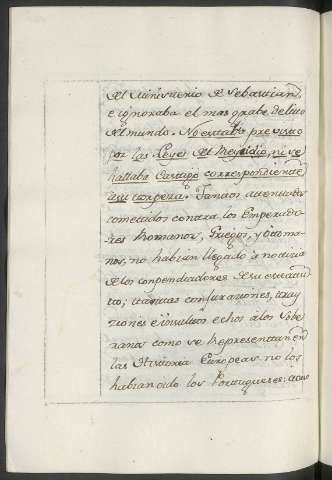 del Ministerio de Sebastian,
e ignoraba el mas grabe delito
del mundo. No estaba previsto
por las Leyes del Regicidio, ni se
hallaba Castigo correspondiente
a su torpeza. Tantos attentados
cometidos contra los Emperado-
res Romanos, Griegos, y Otoma-
nos, no habian llegado a noticia
de los compendiadores de su
to, tantas conjuraciones, tray-
ziones è insultos echos a los Sobe-
ranos como se Representan en
las Historia Europeas no los
habian oido los Portugueses: acaso